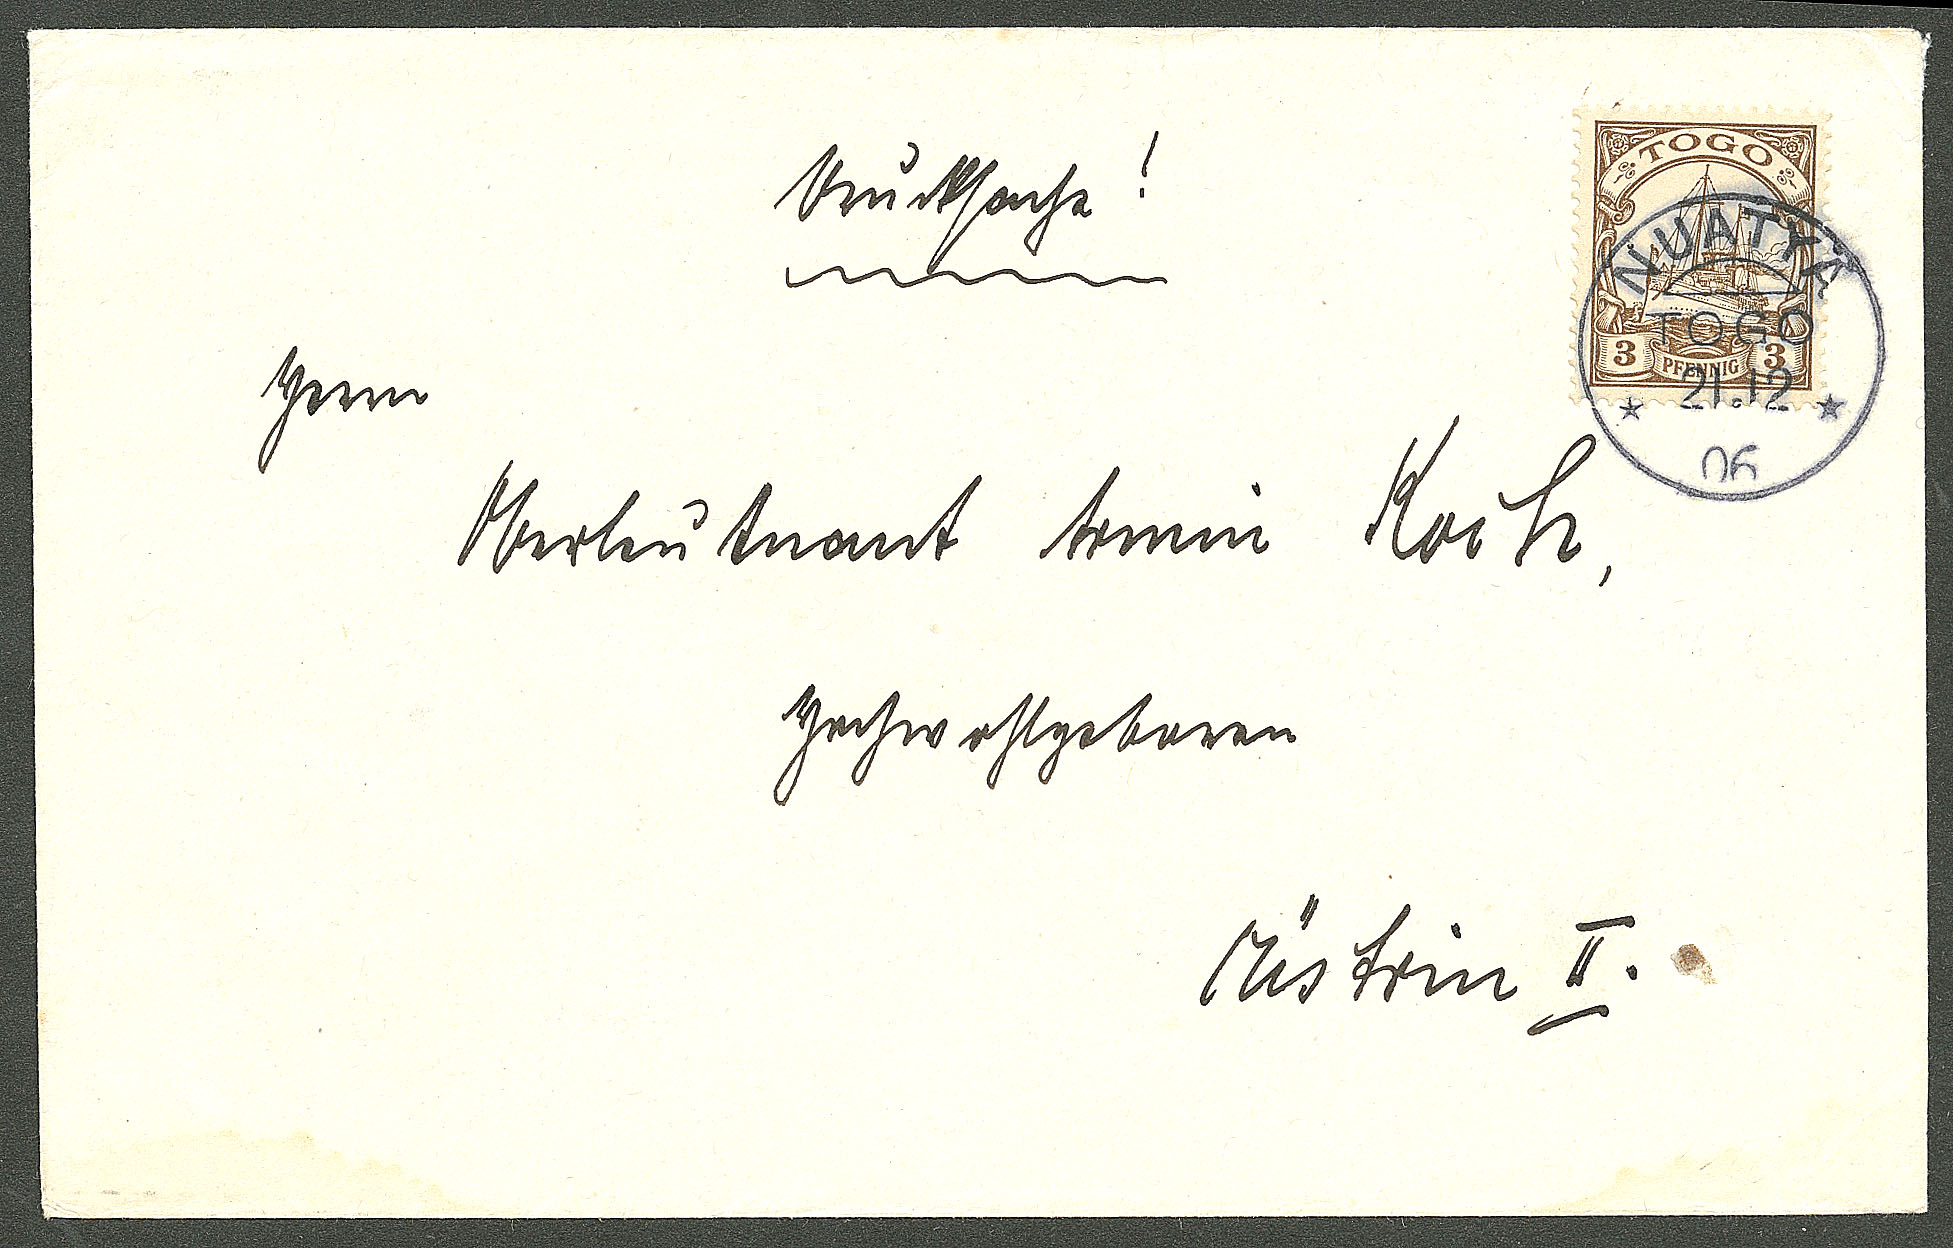 Drucksache!
TOGO
3 PFENNIG 3
NUATYÄ
TOGO
21.12
06
Herrn
Oberleutnant Erwin Koch,
Hochwohlgeboren
Küstrin II.